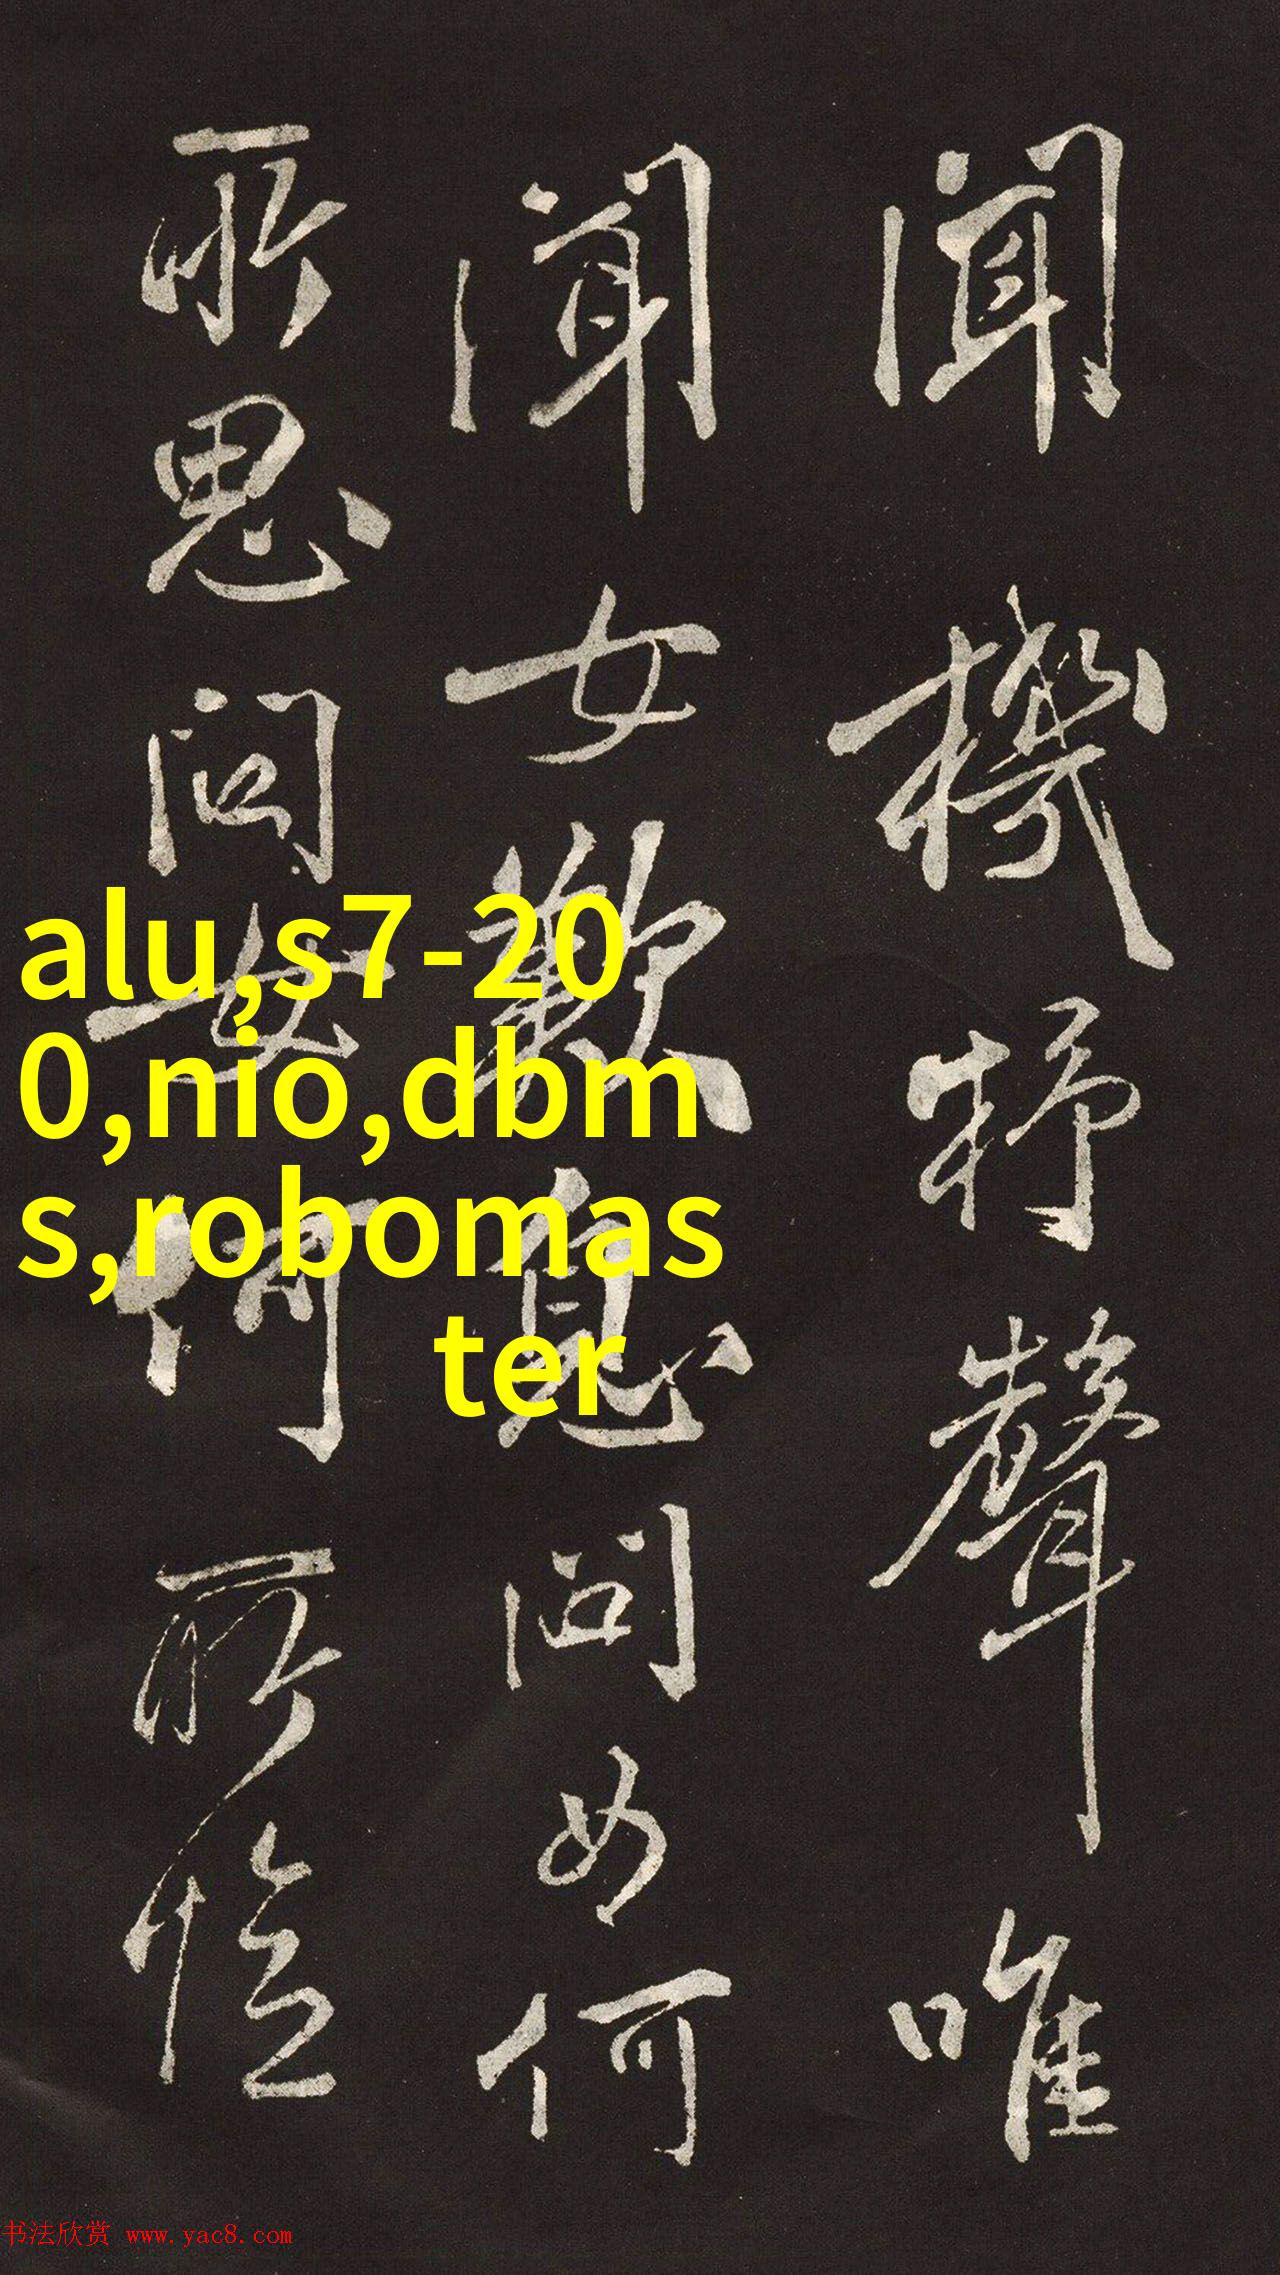 聞機杼聲唯
聞女歎息問女何
所思問女何所憶
alu,s7-20
0,nio,dbm
s,robomas
ter
书法欣赏 www.yac8.com